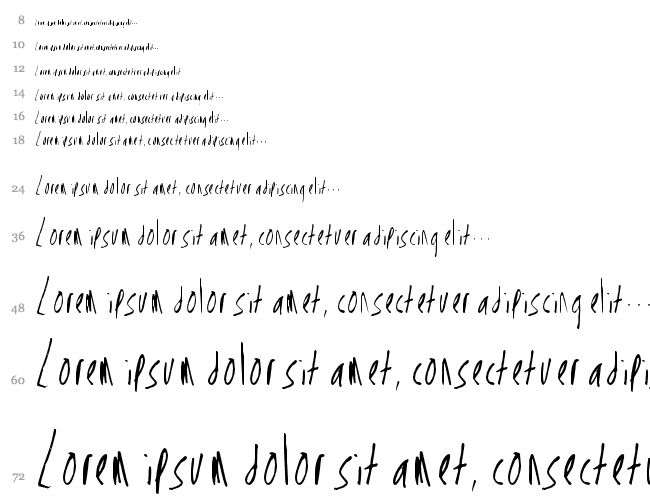 8 Lorem ipsum dolor sit amet, consectetuer adipiscing elit...
10 Lorem ipsum dolor sit amet, consectetuer adipiscing elit...
12 Lorem ipsum dolor sit amet, consectetuer adipiscing elit
14 Lorem ipsum dolor sit amet, consectetuer adipiscing elit...
16 Lorem ipsum dolor sit amet, consectetuer adipiscing elit...
18 Lorem ipsum dolor sit amet, consectetuer adipiscing elit...
24 Lorem ipsum dolor sit amet, consectetuer adipiscing elit...
36 Lorem ipsum dolor sit amet, consectetuer adipiscing elit...
48 Lorem ipsum dolor sit amet, consectetuer adipiscing elit...
60 Lorem ipsum dolor sit amet, consectetuer adipi
72 Lorem ipsum dolor sit amet, consectetu